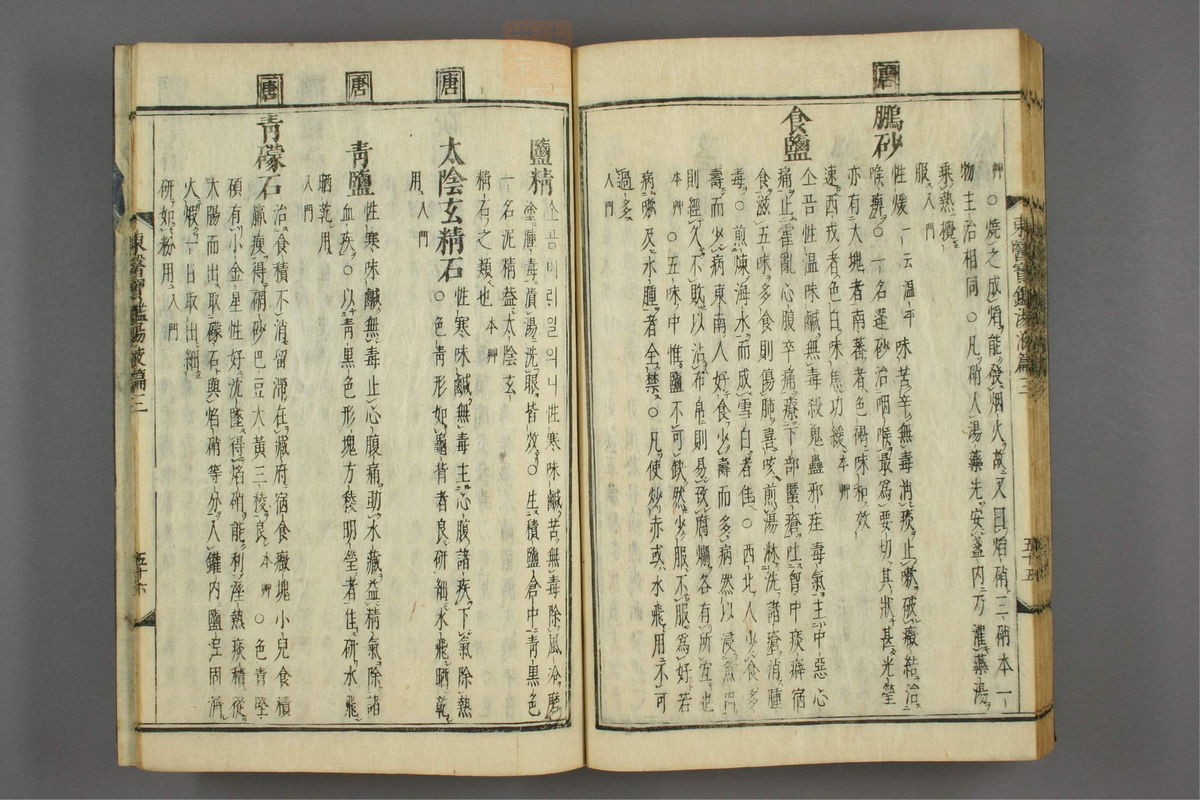 東醫寶鑑湯液篇三
五十五
艸○燒之成熖能發烟火故又曰熖硝三硝本一
物主治相同○凡硝人湯藥先安盞內乃灌藥湯
乘熱攪服入門
唐
鵬砂
性煖一云溫平味苦辛無毒消痰止嗽破癥結治
喉痺○一名蓬砂治咽喉最爲要切其狀甚光瑩
亦有大塊者南蕃者色褐味和效
速西戎者色白味焦功緩本艸
食鹽
소곰性溫味鹹無毒殺鬼蠱邪疰毒氣主中惡心
痛止霍亂心腹卒痛療下部䘌瘡吐胷中痰癖宿
食滋五味多食則傷肺喜咳煎湯淋洗諸瘡消腫
毒○煎煉海水而成雪白者佳○西北人少食多
壽而少病東南人好食少壽而多病然以浸魚肉
則經久不敗以沾布帛則易致腐爛各有所宜也
本艸○五味中惟鹽不可缺然少服不服爲好若
病嗽及水腫者全禁○凡使炒赤或水飛用不可
過多入門
鹽精
소곰머리일의니性寒味鹹苦無毒除風冷
塗腫毒漬湯洗眼皆效○生積鹽倉中靑黑色
一名泥精盖太陰玄
精石之類也本艸
唐
太陰玄精石
性寒味鹹無毒主心腹諸疾下氣除熱
○色靑形如龜背者良研細水飛晒乾
用入門
唐
靑鹽
性寒味鹹無毒止心腹痛助水藏益精氣除諸
血疾○以靑黑色形塊方稜明瑩者佳研水飛
晒乾用
入門
唐
靑礞石
治食積不消留滯在藏府宿食癥塊小兒食積
羸瘦得硇砂巴豆大黃三稜良本艸○色靑堅
碩有小金星性好沈墜得熖硝能利濕熱痰積從
大腸而出取礞石與焰硝等分入鑵內鹽泥固濟
火煆一日取出細
研如粉用入門
東醫寶鑑湯液篇三
五十六